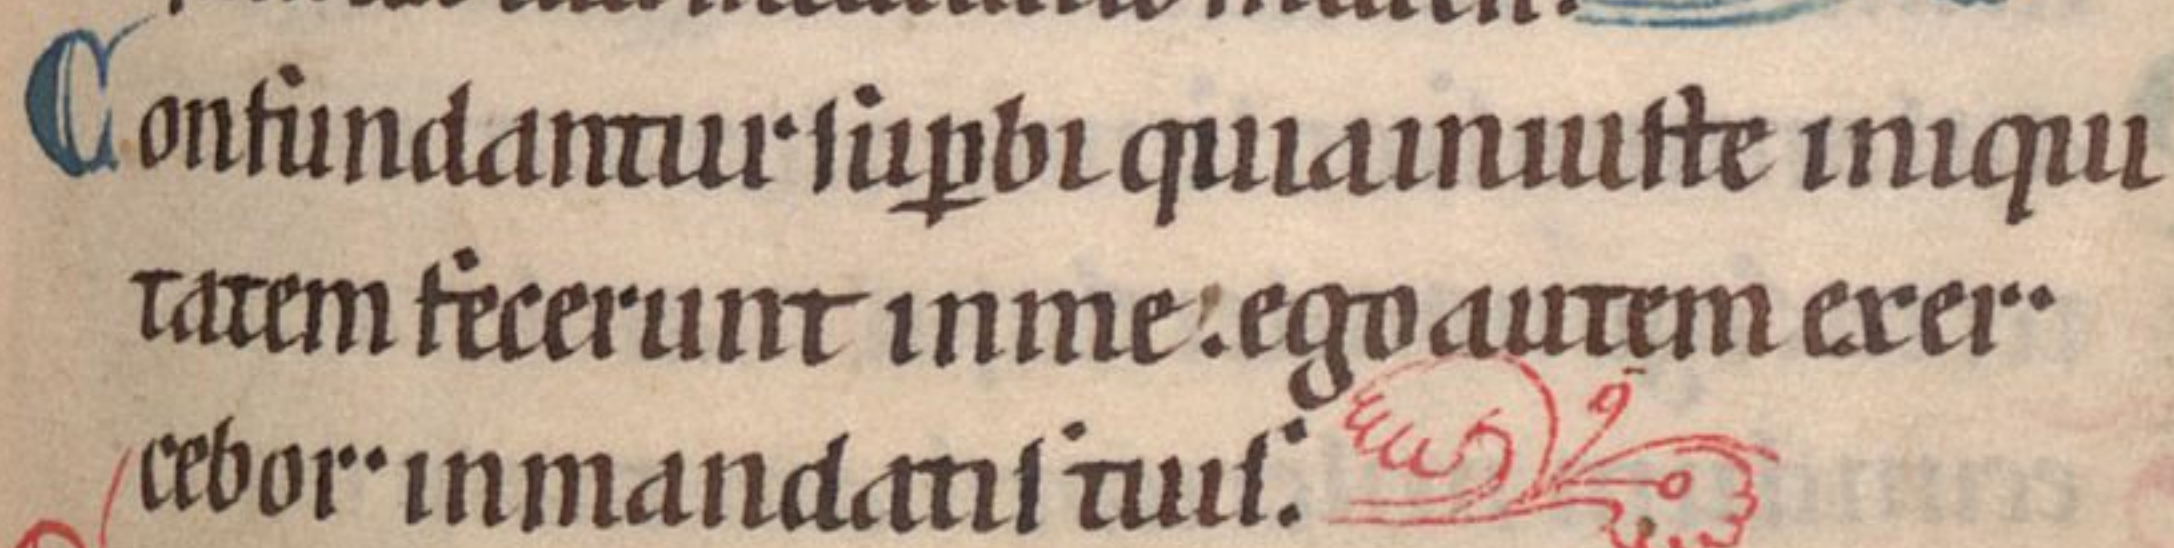 Confundantur supbi quia iniuste iniqui
tatem fecerunt in me: ego autem exer
cebor in mandatis tuis.